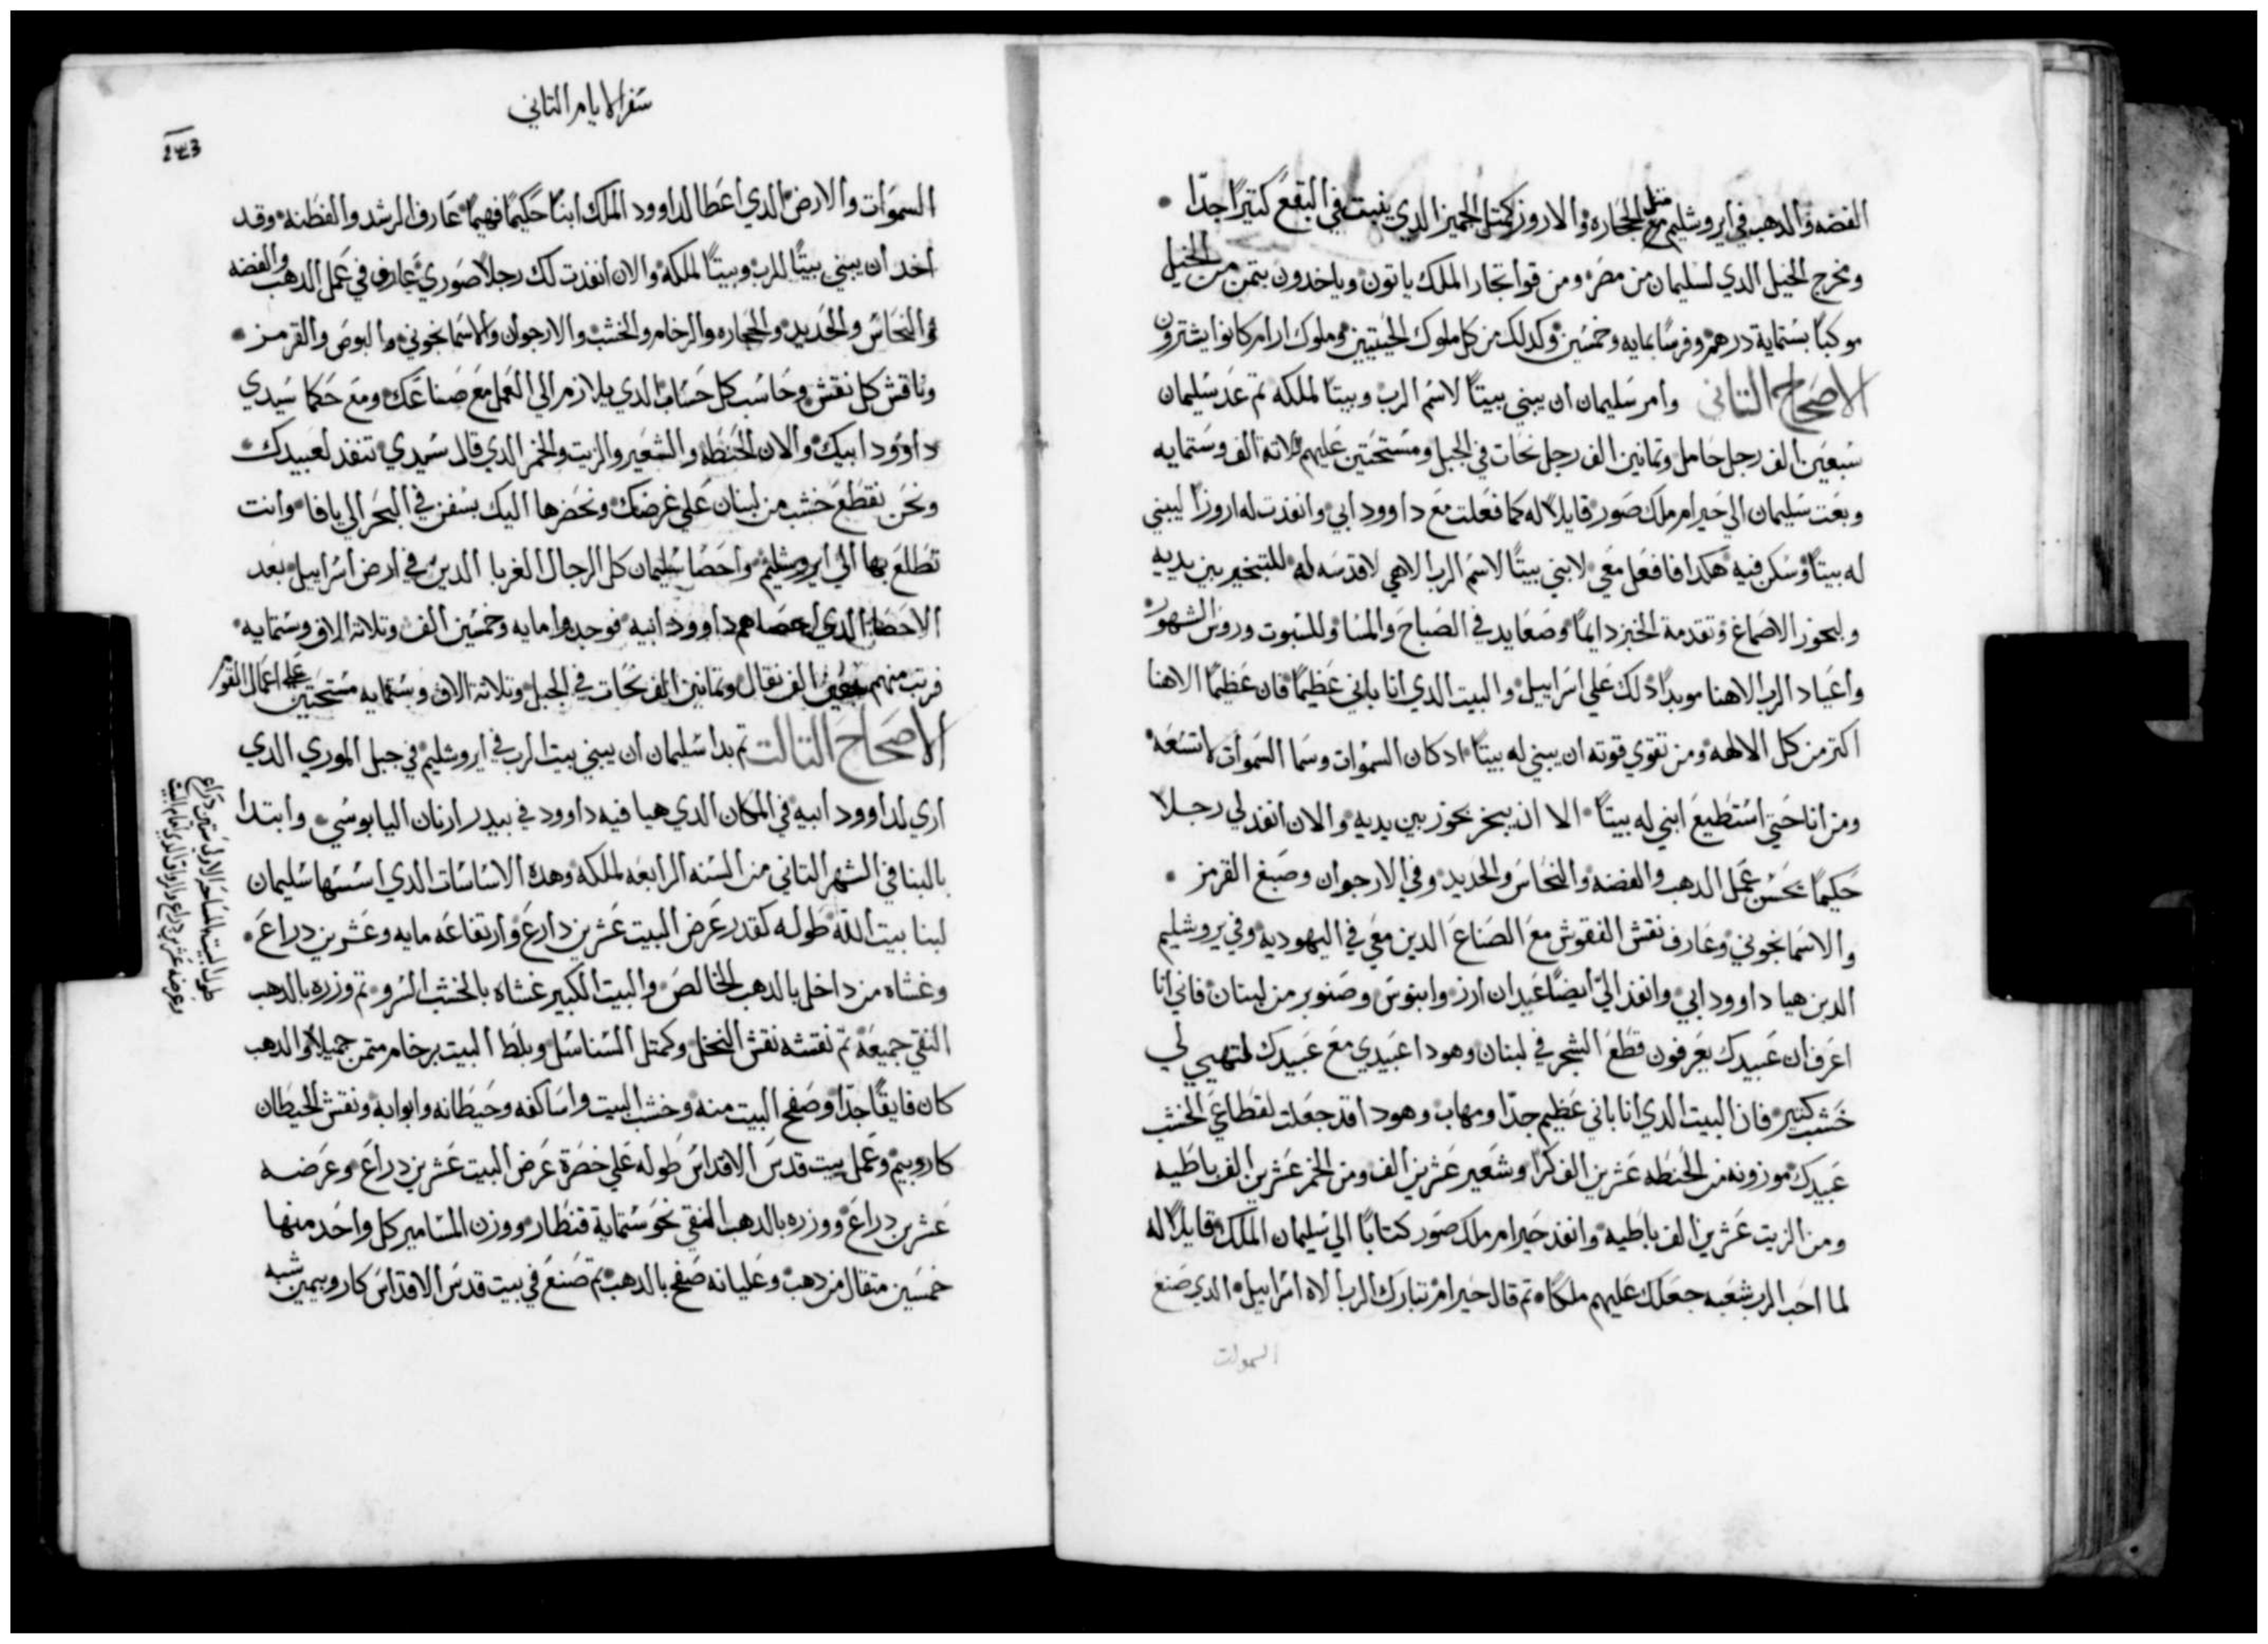 الفضه والدهب في ايروشليم مثل الحجاره والاروز كمتل الجميز الدي ينبت في البقع كتيرًا جدًا
ومخرج الخيل الدي لسليمان من مصر ومن قوا تجار الملك ياتون وياخدون بتمن من الخيل
موكبًا بستماية درهم وفرسًا بمايه وخمسين وكدلك من كل ملوك الحيتيين وملوك ارام كانوا يشترون
الاصحاح التاني وامر سليمان ان يبني بيتًا لاسم الرب وبيتًا لملكه تم عد سليمان
سبعين الف رجل حامل وتمانين الف رجل نحات في الجبل ومستحتين عليهم تلاتة الف وستمايه
وبعت سليمان الي حيرام ملك صور قايلًا له كما فعلت مع داوود ابي وانفذت له اروزًا ليبني
له بيتًا وسكن فيه هكدا فافعل معي لابني بيتًا لاسم الرب الاهي لاقدسه له للتبخير بين يديه
ولبخور الاصماغ وتقدمة الخبز دايمًا وصعايد في الصباح والمسا وللسبوت وروس الشهور
واعياد الرب الاهنا موبدًا دلك علي اسراييل والبيت الدي انا باني عظيمًا فان عظيمًا الاهنا
اكتر من كل الالهه ومن تقوي قوته ان يبني له بيتًا ادكان السموات وسما السموات لاتسعه
ومن انا حتي استطيع ابني له بيتًا الا ان يبخر بخور بين يديه والان انفذ لي رجلا
حكيمًا يحسن عمل الدهب والفضه والنحاس والحديد وفي الارجوان وصبغ القرمز
والاسمانجوني وعارف نقش النقوش مع الصناع الدين معي في اليهوديه وفي يروشليم
الدين هيا داوود ابي وانفذ الي ايضًا عيدان ارز وابنوس وصنوبر من لبنان فاني انا
اعرف ان عبيدك يعرفون قطع الشجر في لبنان وهودا عبيدي مع عبيدك لتهيي لي
خشب كتير فان البيت الدي انا باني عظيم جدًا ومهاب وهودا قد جعلت لقطاعي الخشب
عبيدك موزونه من الحنطه عشرين الف كرًا وشعير عشرين الف ومن الخمر عشرين الف باطيه
ومن الزيت عشرين الف باطيه وانفذ حيرام ملك صور كتابًا الي سليمان الملك قايلًا له
لما احب الرب شعبه جعلك عليهم ملكًا تم قال حيرام تبارك الرب الاه اسراييل الدي صنع
السموات
سفر الايام التاني
243
السموات والارض الدي اعطا لداوود الملك ابنًا حكيمًا فهيمًا عارف الرشد والفطنه وقد
اخد ان يبني بيتًا للرب وبيتًا لملكه والان انفذت لك رجلًا صوري عارف في عمل الدهب والفضه
والنحاس والحديد والحجاره والرخام والخشب والارجوان والاسمانجوني والبوص والقرمز
وناقش كل نقش وحاسب كل حساب الدي يلازم الي العمل مع صناعك ومع حكما سيدي
داوود ابيك والان الحنطه والشعير والزيت والخمر الدي قال سيدي تنفذ لعبيدك
ونحن نقطع خشب من لبنان علي غرضك ونحضرها اليك بسفن في البحر الي يافا وانت
تطلع بها الي ايروشليم واحصا سليمان كل الرجال الغربا الدين في ارض اسراييل بعد
الاحصا الدي احصاهم داوود ابيه فوجدوا مايه وخمسين الف وتلاتة الاف وستمايه
فرتب منهم سبعين الف نقال وتمانين الف نحات في الجبل وتلاتة الاف وستمايه مستحتين علي اعمال القوم
الاصحاح التالت تم بدا سليمان ان يبني بيت الرب في ايروشليم في جبل الموري الدي
اري لداوود ابيه في المكان الدي هيا فيه داوود في بيدر ارنان اليابوسي وابتدا
بالبنا في الشهر التاني من السنه الرابعه لملكه وهده الاساسات الدي اسسها سليمان
لبنا بيت الله طوله كقدر عرض البيت عشرين دارع وارتفاعه مايه وعشرين دراع
وغشاه من داخل بالدهب الخالص والبيت الكبير غشاه بالخشب السرو تم وزره بالدهب
النقي جميعه تم نقشه نقش النخل وكمتل السناسل وبلط البيت برخام متمن جميلًا والدهب
كان فايقًا جدًا وصفح البيت منه وخشب البيت واساكفه وحيطانه وابوابه ونقش الحيطان
كاروبيم وعمل بيت قدس الاقداس طوله علي خضرة عرض البيت عشرين دراع وعرضه
عشرين دراع ووزره بالدهب النقي نحو ستماية قنطار ووزن المسامير كل واحد منها
خمسين متقال من دهب وعليانه صفح بالدهب تم صنع في بيت قدس الاقداس كاروبيمين شبه
طول البيت بالمساحه الاولي ستين دراع
وعرضه عشرين دراع والرواق الدي امام البيت